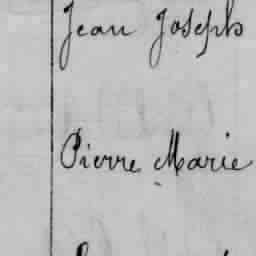 Jean Joseph
Pierre Marie